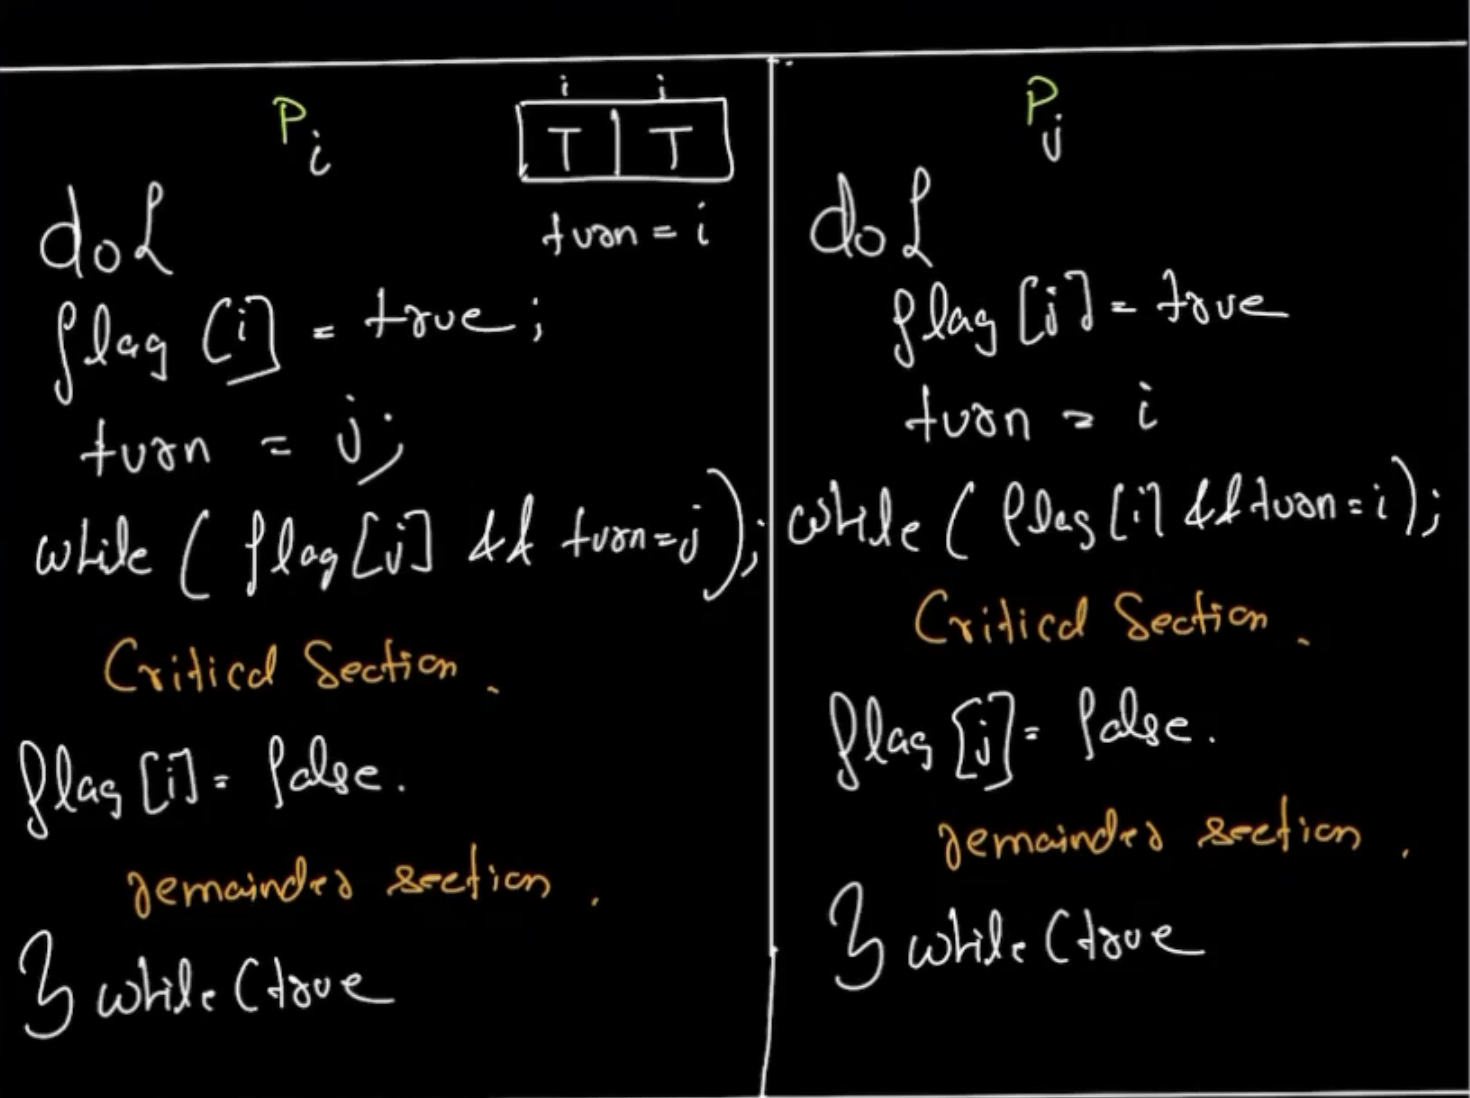 Pi
i j
T | T
turn = i
do {
flag [i] = true ;
turn = j;
while ( flag [j] && turn=j );
Critical Section .
flag [i] = false.
remainder section .
} while (true
Pj
do {
flag [j] = true
turn = i
while ( flag [i] && turn = i );
Critical Section .
flag [j] = false.
remainder section .
} while (true